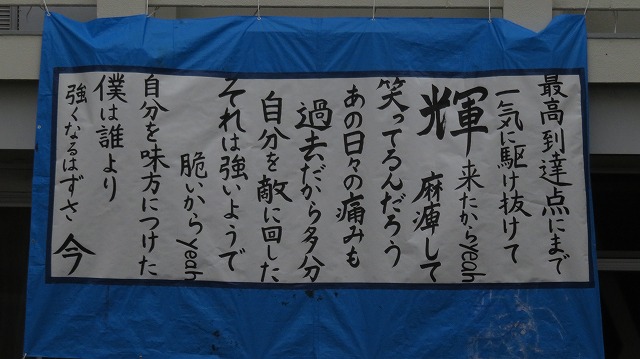 最高到達点にまで
一気に駆け抜けて
輝 来たからyeah
麻痺して
笑ってるんだろう
あの日々の痛みも
過去だから多分
自分を敵に回した
それは強いようで
脆いからyeah
自分を味方につけた
僕は誰より
強くなるはずさ 今